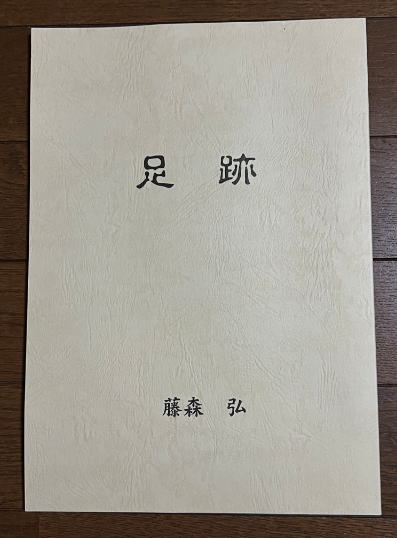 足 跡
藤森 弘